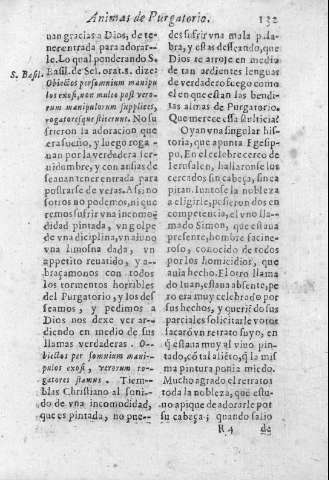 Animas de Purgatorio. 132
uan gracias a Dios, de te-
ner entrada para adorar-
le. Lo qual ponderando S.
S. Basil. Basil. de Sel. orat. 8. dize:
Obiectos per somnium manipu
los exosi, non multo post vero-
rum manipulorum supplices,
rogatoresque steterunt. No su
frieron la adoracion que
era sueño, y luego roga-
uan por la verdadera ser-
uidumbre, y con ansias de
seauan tener entrada para
postrarse de veras. Assi no
sotros no podemos, ni que
remos sufrir vna incomo
didad pintada, vn golpe
de vna diciplina, vn ayuno
vna limosna dada, vn
appetito reuatido, y a-
braçamonos con todos
los tormentos horribles
del Purgatorio, y los des
seamos, y pedimos a
Dios nos dexe ver ar-
diendo en medio de sus
llamas verdaderas. O-
biectos per somnium mani-
pulos exosi, verorum ro-
gatores stamus. Tiem-
blas Christiano al soni-
do de vna incomodidad,
que es pintada, no pue-
des sufrir vna mala pala-
bra, y estas desseando, que
Dios te arroje en media
de tan ardientes lenguas
de verdadero fuego como
el en que estan las bendi-
tas almas de Purgatorio.
Que merece essa stulticia?
Oyan vna singular his-
toria, que apunta Egesip-
po. En el celebre cerco de
Ierusalen, hallaronse los
cercados sin cabeça, sin ca
pitan. Iuntose la nobleza
a eligirle, pusieron dos en
competencia, el vno lla-
mado Simon, que estaua
presente, hombre facine-
roso, conocido de todos
por los homicidios, que
auia hecho. El otro llama
do Iuan, estaua absente, pe
ro era muy celebrado por
sus hechos, y querido sus
parciales solicitarle votos
sacarõ vn retrato suyo, en
q̃ estaua muy al viuo pin-
tado, cõ tal aliẽto, q̃ la mis
ma pintura ponia miedo.
Mucho agrado el retrato a
toda la nobleza, que estu-
uo apique de adorarle por
su cabeça; quando salio
R 4 de